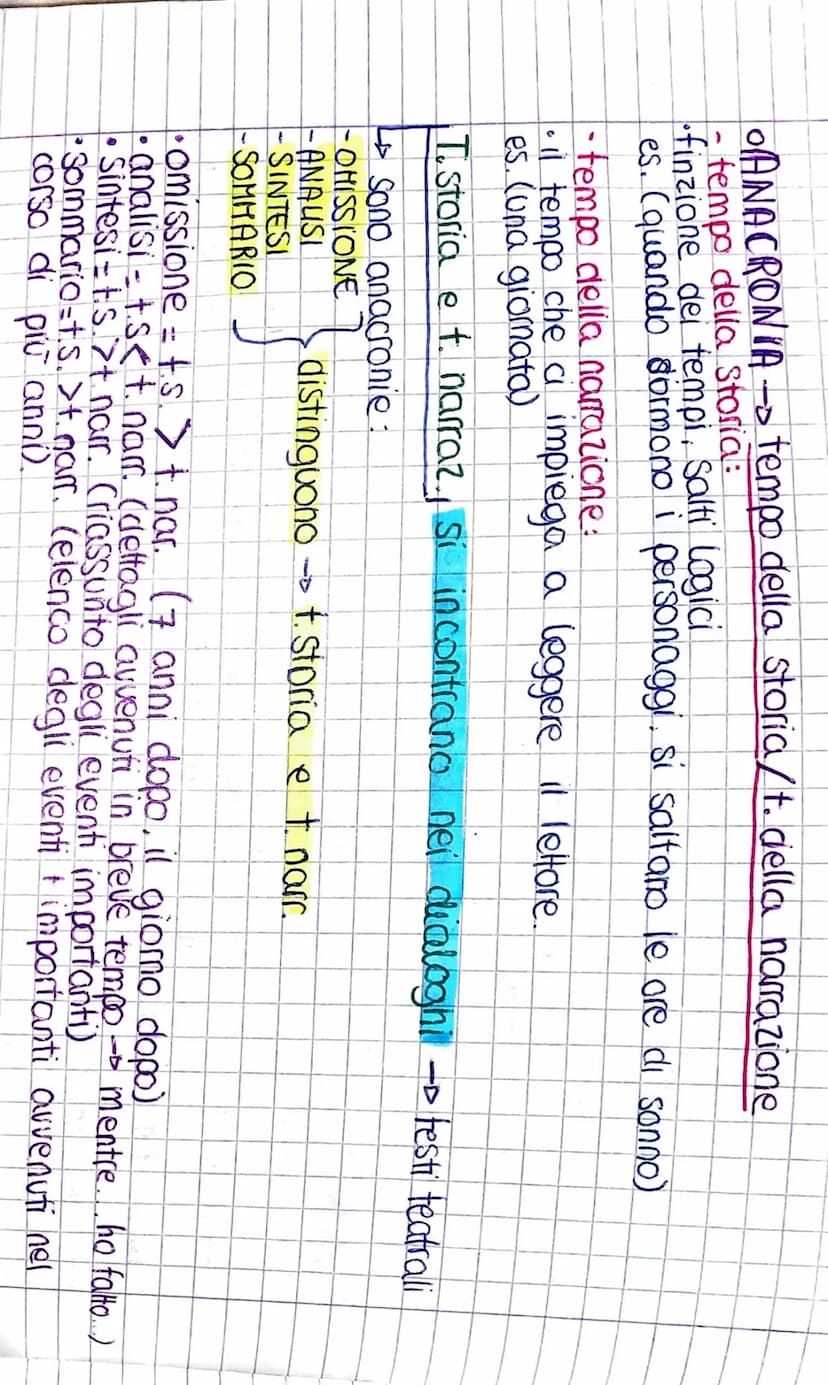 o ANACRONIA → tempo della storia/t. della narrazione
- tempo della storia:
• finzione dei tempi, salti logici
es. (quando dormono i personaggi, si saltano le ore di sonno)
- tempo della narrazione:
• il tempo che ci impiega a leggere il lettore.
es. (una giornata)
T. storia e t. narraz., si incontrano nei dialoghi → testi teatrali
↳ sono anacronie:
- OMISSIONE
- ANALISI
- SINTESI
- SOMMARIO
} distinguono → t. storia e t. narr.
• omissione = t.s. > t. nar. (7 anni dopo, il giorno dopo)
• analisi = t.s < t. narr. (dettagli avvenuti in breve tempo → mentre... ho fatto...)
• sintesi = t.s. > t. narr. (riassunto degli eventi importanti)
• sommario = t.s. > t. narr. (elenco degli eventi + importanti avvenuti nel
corso di più anni).